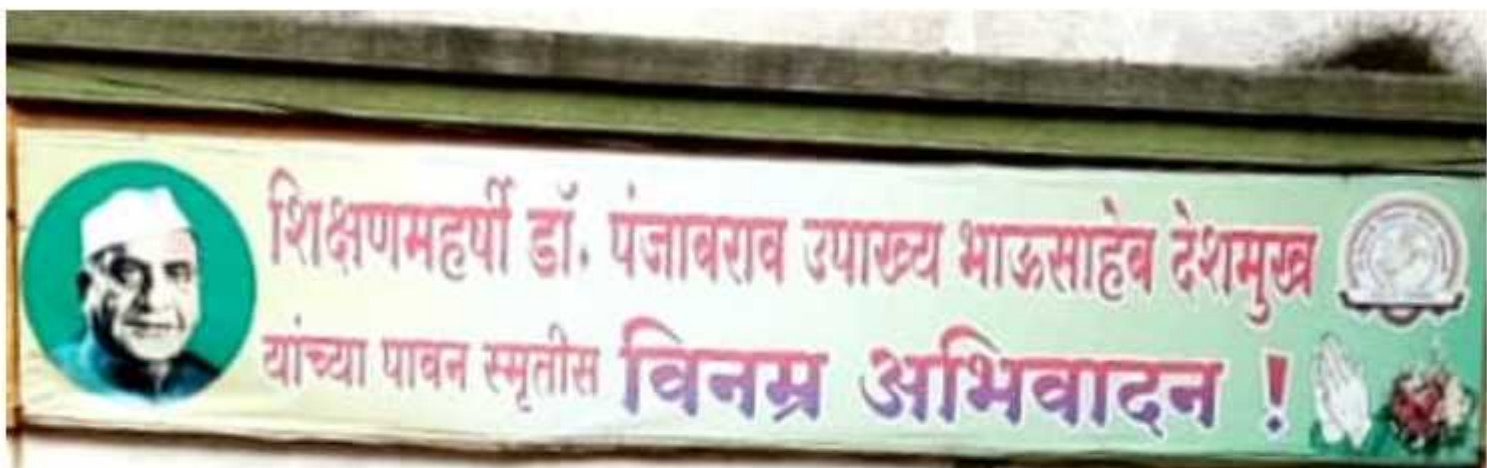 शिक्षणमहर्षी डॉ. पंजाबराव उपाख्य भाऊसाहेब देशमुख
यांच्या पावन स्मृतीस विनम्र अभिवादन !